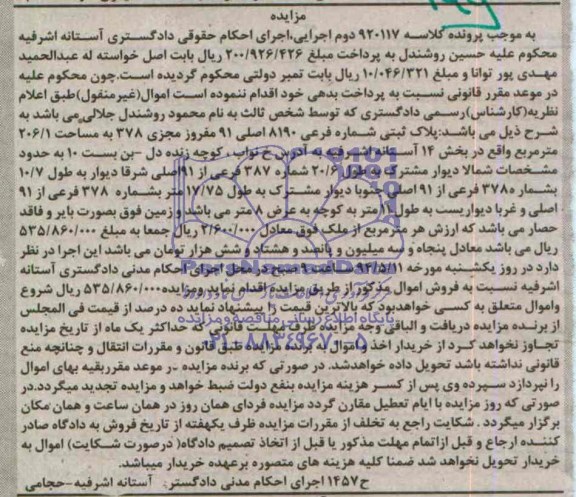 مزایده
به موجب پرونده کلاسه ۹۲۰۱۱۷ دوم اجرایی،اجرای احکام حقوقی دادگستری آستانه اشرفیه
محکوم علیه حسین روشندل به پرداخت مبلغ ۲۰۰/۹۲۶/۴۲۶ ریال بابت اصل خواسته له عبدالحمید
مهدی پور توانا و مبلغ ۱۰/۰۴۶/۳۲۱ ریال بابت تمبر دولتی محکوم گردیده است.چون محکوم علیه
در موعد مقرر قانونی نسبت به پرداخت بدهی خود اقدام ننموده است اموال(غیرمنقول)طبق اعلام
نظریه(کارشناس)رسمی دادگستری که توسط شخص ثالث به نام محمود روشندل جلالی می باشد به
شرح ذیل می باشد:پلاک ثبتی شماره فرعی ۸۱۹۰ اصلی ۹۱ مفروز مجزی ۳۷۸ به مساحت ۲۰۶/۱
مترمربع واقع در بخش ۱۴ آستانه اشرفیه به آدرس خ نواب . کوچه زنده دل -بن بست ۱۰ به حدود
مشخصات شمالا دیوار مشترک به طول ۲۰/۶ شماره ۳۸۷ فرعی از ۹۱اصلی شرقا دیوار به طول ۱۰/۷
بشماره ۳۷۸ فرعی از ۹۱ اصلی جنوبا دیوار مشترک به طول ۱۷/۷۵ متر بشماره ۳۷۸ فرعی از ۹۱
اصلی و غربا دیواریست به طول متر به کوچه به عرض ۸ متر می باشد و زمین فوق بصورت بایر و فاقد
حصار می باشد که ارزش هر مترمربع از ملک فوق معادل ۲/۶۰۰/۰۰۰ ریال جمعا به مبلغ ۵۳۵/۸۶۰/۰۰۰
ریال می باشد معادل پنجاه و سه میلیون و پانصد و هشتاد و شش هزار تومان می باشد این اجرا در نظر
دارد در روز یکشنبه مورخه ۹۴/۵/۱۱ ساعت ۹ صبح در محل اجرای احکام مدنی دادگستری آستانه
اشرفیه نسبت به فروش اموال مذکور از طریق مزایده اقدام نماید ومزایده ۵۳۵/۸۶۰/۰۰۰ ریال شروع
واموال متعلق به کسی خواهدبود که بالاترین قیمت را پیشنهاد نماید ده درصد از قیمت فی المجلس
از برنده مزایده دریافت و الباقی وجه مزایده ظرف مهلت قانونی که حداکثر یک ماه از تاریخ مزایده
تجاوز نخواهد کرد از خریدار اخذ و اموال به برنده مزایده طبق قانون و مقررات انتقال و چنانچه منع
قانونی نداشته باشد تحویل داده خواهدشد. در صورتی که برنده مزایده در موعد مقرربقیه بهای اموال
را نپردازد سپرده وی پس از کسر هزینه مزایده بنفع دولت ضبط خواهد و مزایده تجدید میگردد.در
صورتی که روز مزایده با ایام تعطیل مقارن گردد مزایده فردای همان روز در همان ساعت و همان مکان
برگزار میگردد . شکایت راجع به تخلف از مقررات مزایده ظرف یکهفته از تاریخ فروش به دادگاه صادر
کننده ارجاع و قبل ازاتمام مهلت مذکور یا قبل از اتخاذ تصمیم دادگاه( درصورت شکایت) اموال به
خریدار تحویل نخواهد شد ضمنا کلیه هزینه های متصوره برعهده خریدار میباشد.
ح۱۴۵۷ اجرای احکام مدنی دادگستری آستانه اشرفیه-حجامی
پایگاه اطلاع رسانی مناقصه و مزایده
۰۲۱-۸۸۳۴۹۶۷۰-۵